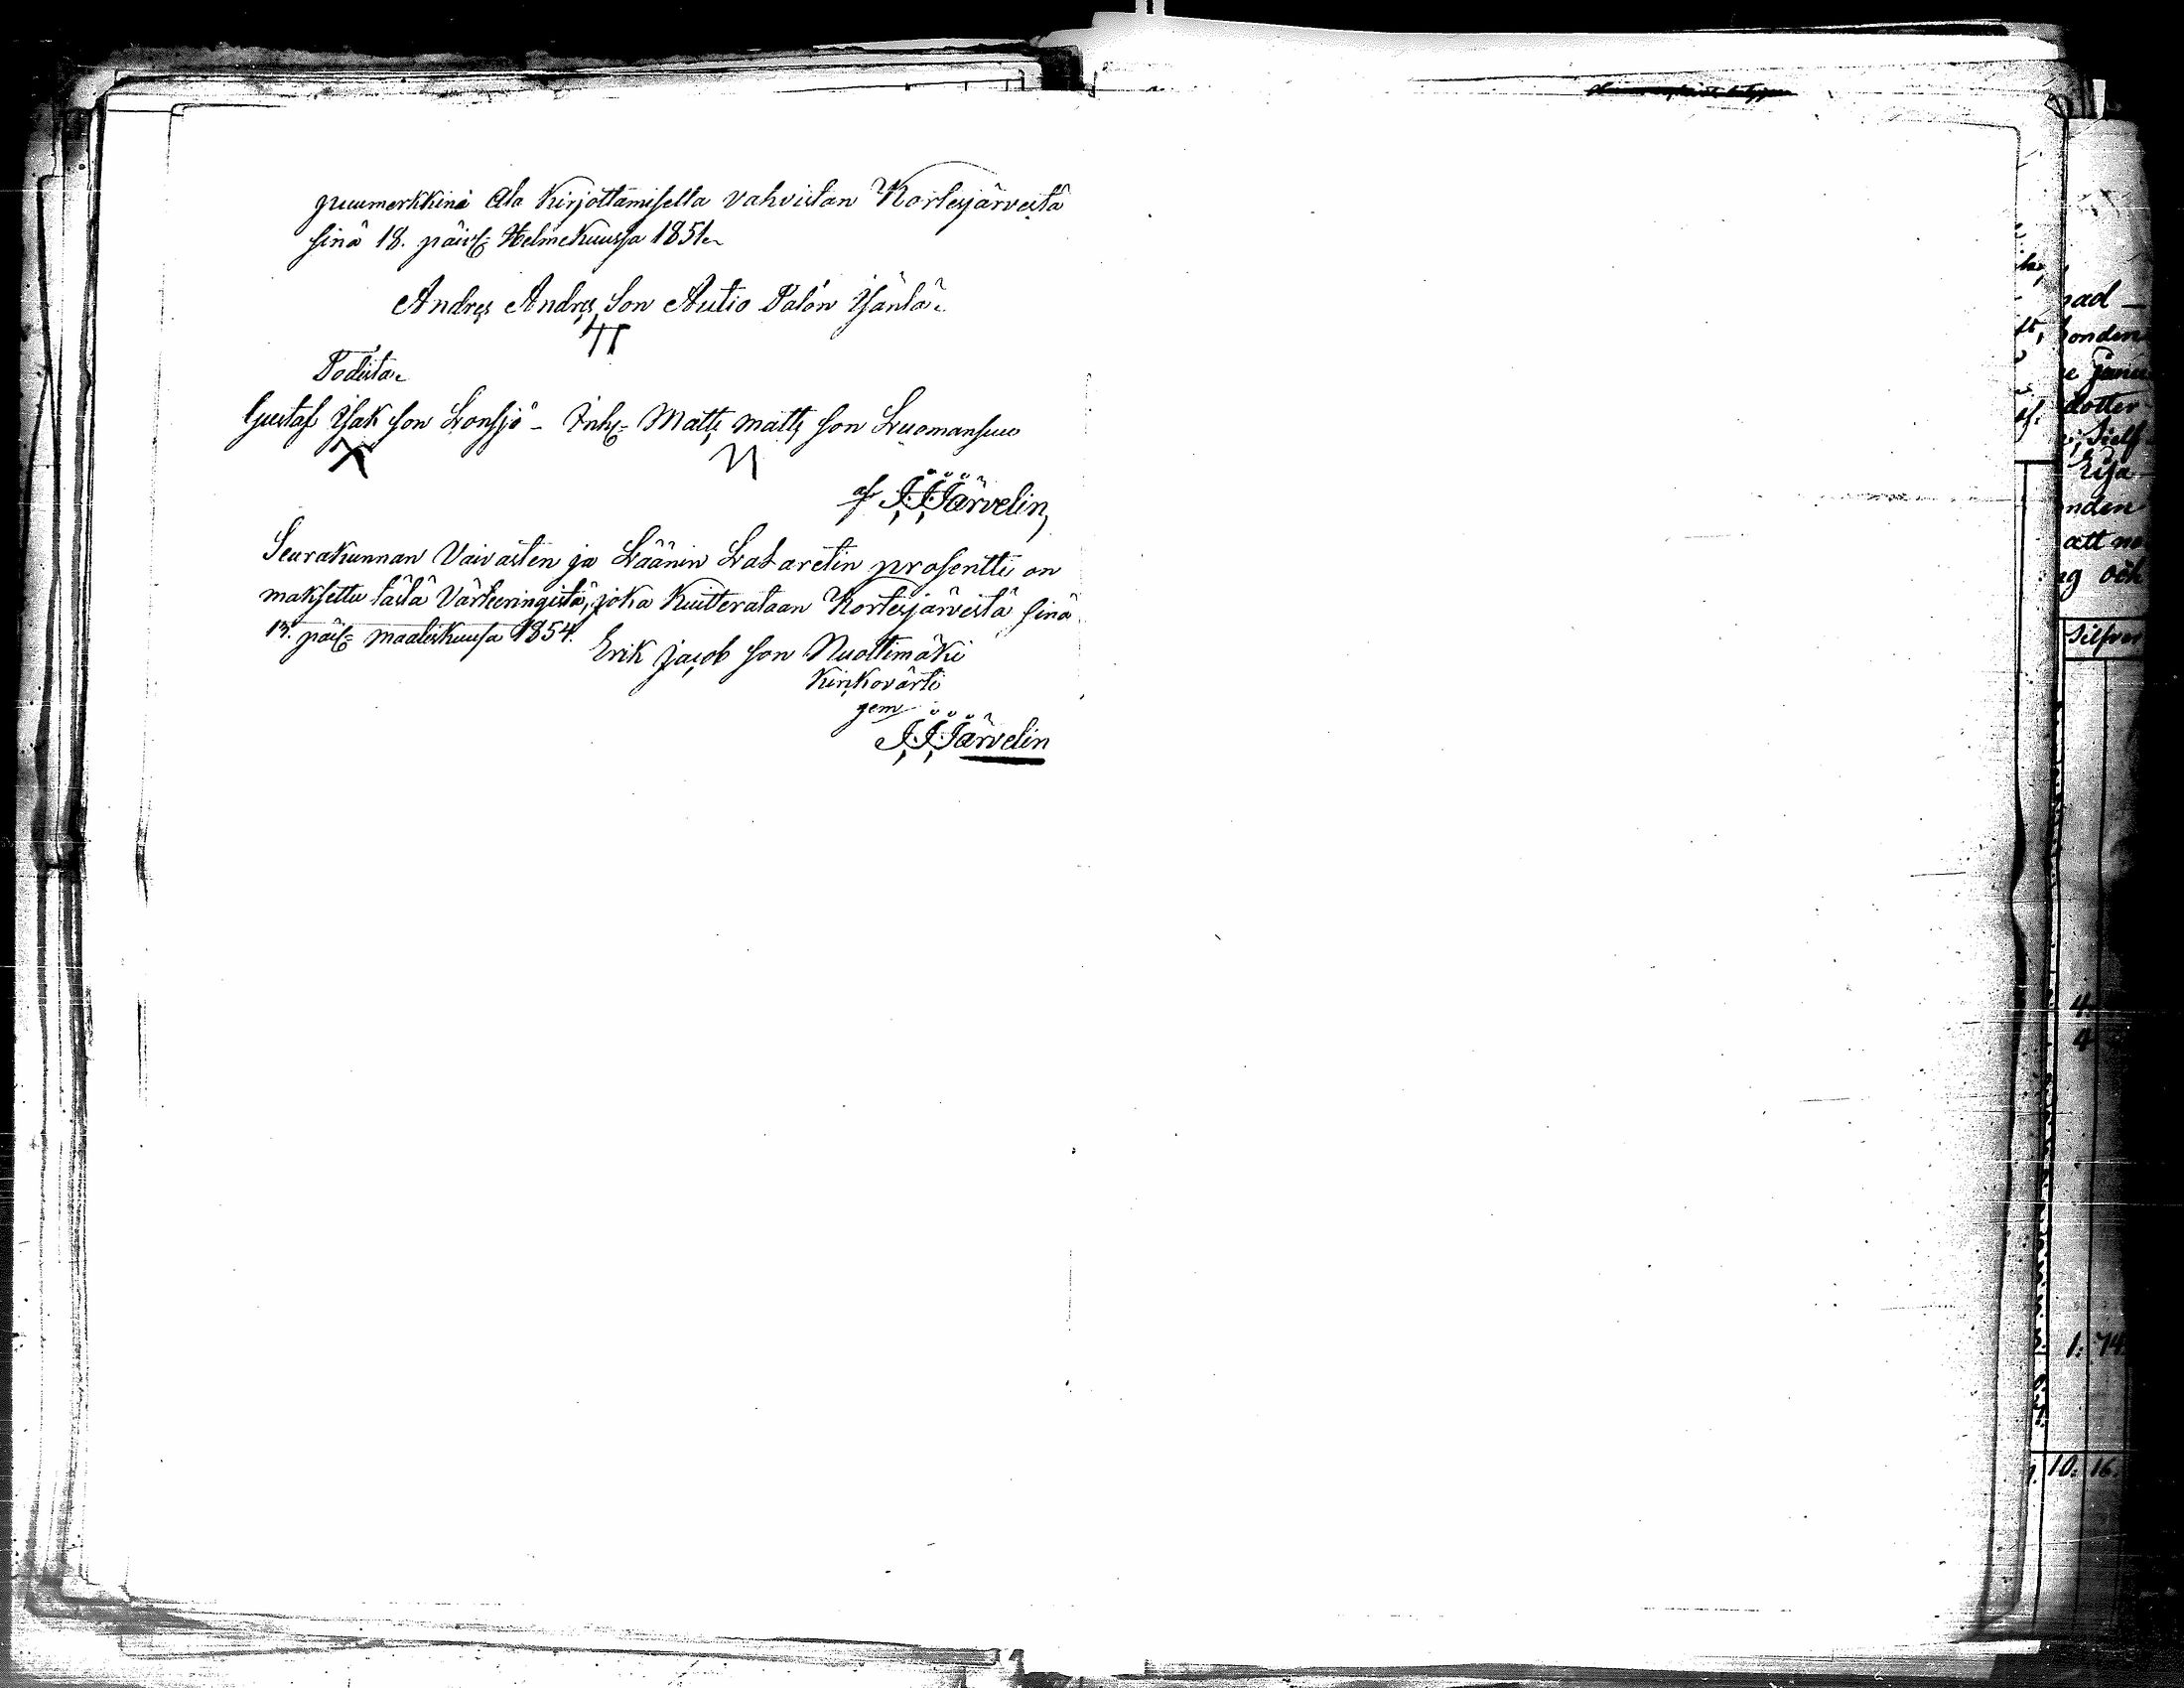 puumerkkinä ala kirjottamisella vahvistan Kortesjärvestä
sinä 18. päiv: Helmekuussa 1851.
Andrs Andrs Son Autio Talon Isäntä.
Todista.
Gustaf Isak son Lonsjö - Inhs: Matts matts son Luomansuu
af J.J.Järvelin,
Seurakunnan Vaivasten ja Läänin Lataretin prosentti on
maksettu tästä Värteeringistä, joka kuitterataan Kortesjärvestä sinä
13. päis: maaliskuusa 1854.
Erik Jacob son Nuottimäki
Kirkovärti
gem
J.J.Järvelin
onden
dotter
Elsa
nden
att
och
4
4
1: 74
10: 16.